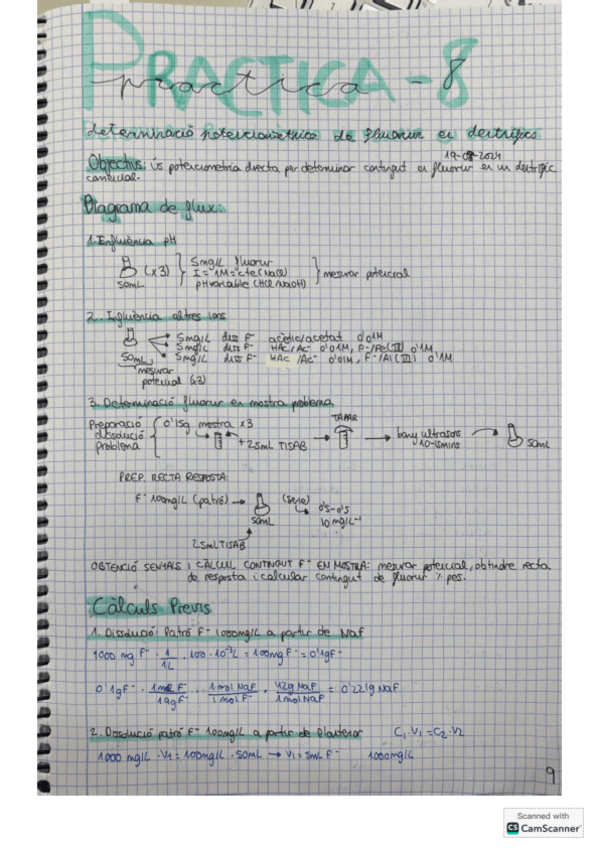 PRACTICA - 8
practica
determinació potenciomètrica de fluorur en dentrífics
19-08-2024
Objectius: ús potenciometria directa per determinar contingut en fluorur en un dentrífic
comercial.
Diagrama de flux:
1. Influència pH
50mL (x3) 5mg/L fluorur
I = 1M = cte (NaCl)
pH variable (HCl/NaOH)
mesurar potencial
2. Influència altres ions
5mg/L diss F- acètic/acetat 0'01M
5mg/L diss F- HAc/Ac- 0'01M, F-/Fe(III) 0'1M
50mL 5mg/L diss F- HAc/Ac- 0'01M, F-/Al(III) 0'1M
mesurar
potencial (x3)
3. Determinació fluorur en mostra problema
TAPAR
Preparació
dissolució
problema
0'15g mostra x3
+25mL TISAB
bany ultrasons
10-15mins
50mL
PREP. RECTA RESPOSTA:
F- 100mg/L (patró) (sèrie)
50mL
0'5-0'5
10 mg/L-1
25mL TISAB
OBTENCIÓ SENYALS I CÀLCUL CONTINGUT F- EN MOSTRA: mesurar potencial, obtindre recta
de resposta i calcular contingut de fluorur % pes.
Càlculs Previs
1. Dissolució Patró F- 1000mg/L a partir de NaF
1000 mg F- · 1/1L · 100·10^-3 L = 100mg F- = 0'1gF-
0'1gF- · 1mol F-/19gF- · 1mol NaF/1mol F- · 42g NaF/1mol NaF = 0'221g NaF
2. Dissolució patró F- 100mg/L a partir de l'anterior C1·V1=C2·V2
1000 mg/L · V1 = 100mg/L · 50mL → V1 = 5mL F- 1000mg/L
9
Scanned with
CS CamScanner